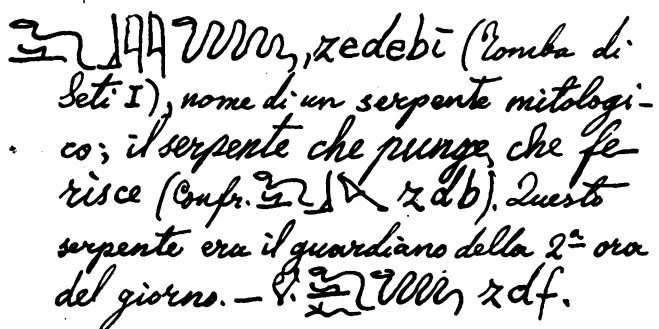 , zedebi (Tomba di
Seti I), nome di un serpente mitologi-
co; il serpente che punge, che fe-
risce (Confr. zdb). Questo
serpente era il guardiano della 2ª ora
del giorno. — V. zdf.